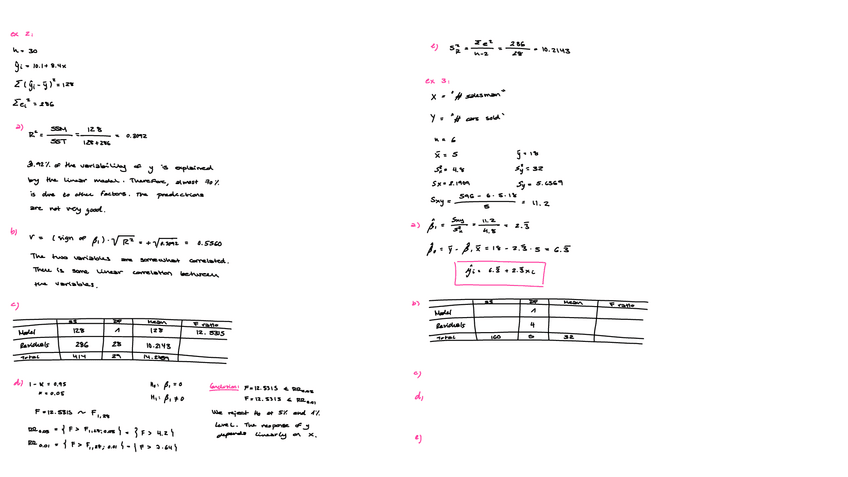 ex 2:
n = 30
ŷi = 10.1 + 8.4x
Σ(ŷi - ȳ)² = 128
Σei² = 286
a) R² = SSM/SST = 128/(128+286) = 0.3092
3.92% of the variability of y is explained
by the linear model. Therefore, almost 70%
is due to other factors. The predictions
are not very good.
b) r = (sign of β̂1) · √R² = +√0.3092 = 0.5560
The two variables are somewhat correlated.
There is some linear correlation between
the variables.
c)
SS DF Mean F ratio
Model 128 1 128 12.5315
Residuals 286 28 10.2143
Total 414 29 14.2759
d) 1-α = 0.95 H0: β1 = 0
α = 0.05 H1: β1 ≠ 0
F = 12.5313 ~ F1,28
RR0.05 = { F > F1,28; 0.05 } = { F > 4.2 }
RR0.01 = { F > F1,28; 0.01 } = { F > 7.64 }
Conclusion: F = 12.5313 ∈ RR0.05
F = 12.5313 ∈ RR0.01
We reject H0 at 5% and 1%
level. The response of y
depends linearly on x.
e) S²R = Σe²/(n-2) = 286/28 = 10.2143
ex 3:
X = "# salesman"
Y = "# cars sold"
n = 6
x̄ = 5 ȳ = 18
S²x = 4.8 S²y = 32
Sx = 2.1909 Sy = 5.6569
Sxy = (596 - 6·5·18)/5 = 11.2
a) β̂1 = Sxy/S²x = 11.2/4.8 = 2.3̄
β̂0 = ȳ - β̂1x̄ = 18 - 2.3̄ · 5 = 6.3̄
ŷi = 6.3̄ + 2.3̄xi
b)
SS DF Mean F ratio
Model 1
Residuals 4
Total 160 5 32
c)
d)
e)